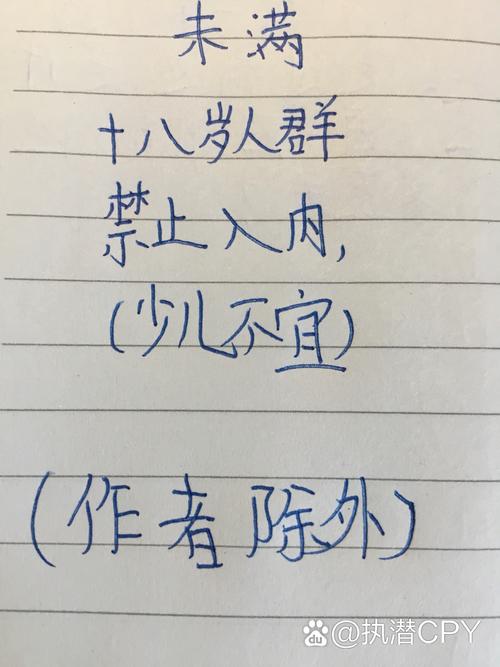 未满
十八岁人群
禁止入内,
(少儿不宜)
(作者除外)
@执潜CPY